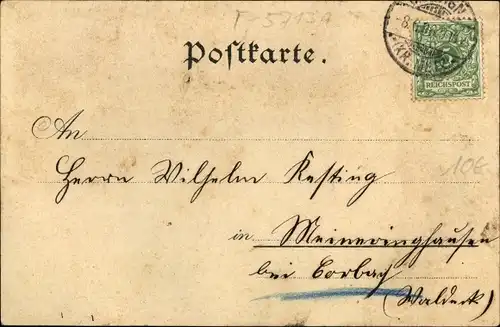 F-57139
Postkarte.
REICHSPOST
An
Herrn Wilhelm Kesting
10€
in Meineringhausen
bei Corbach
(Waldeck)